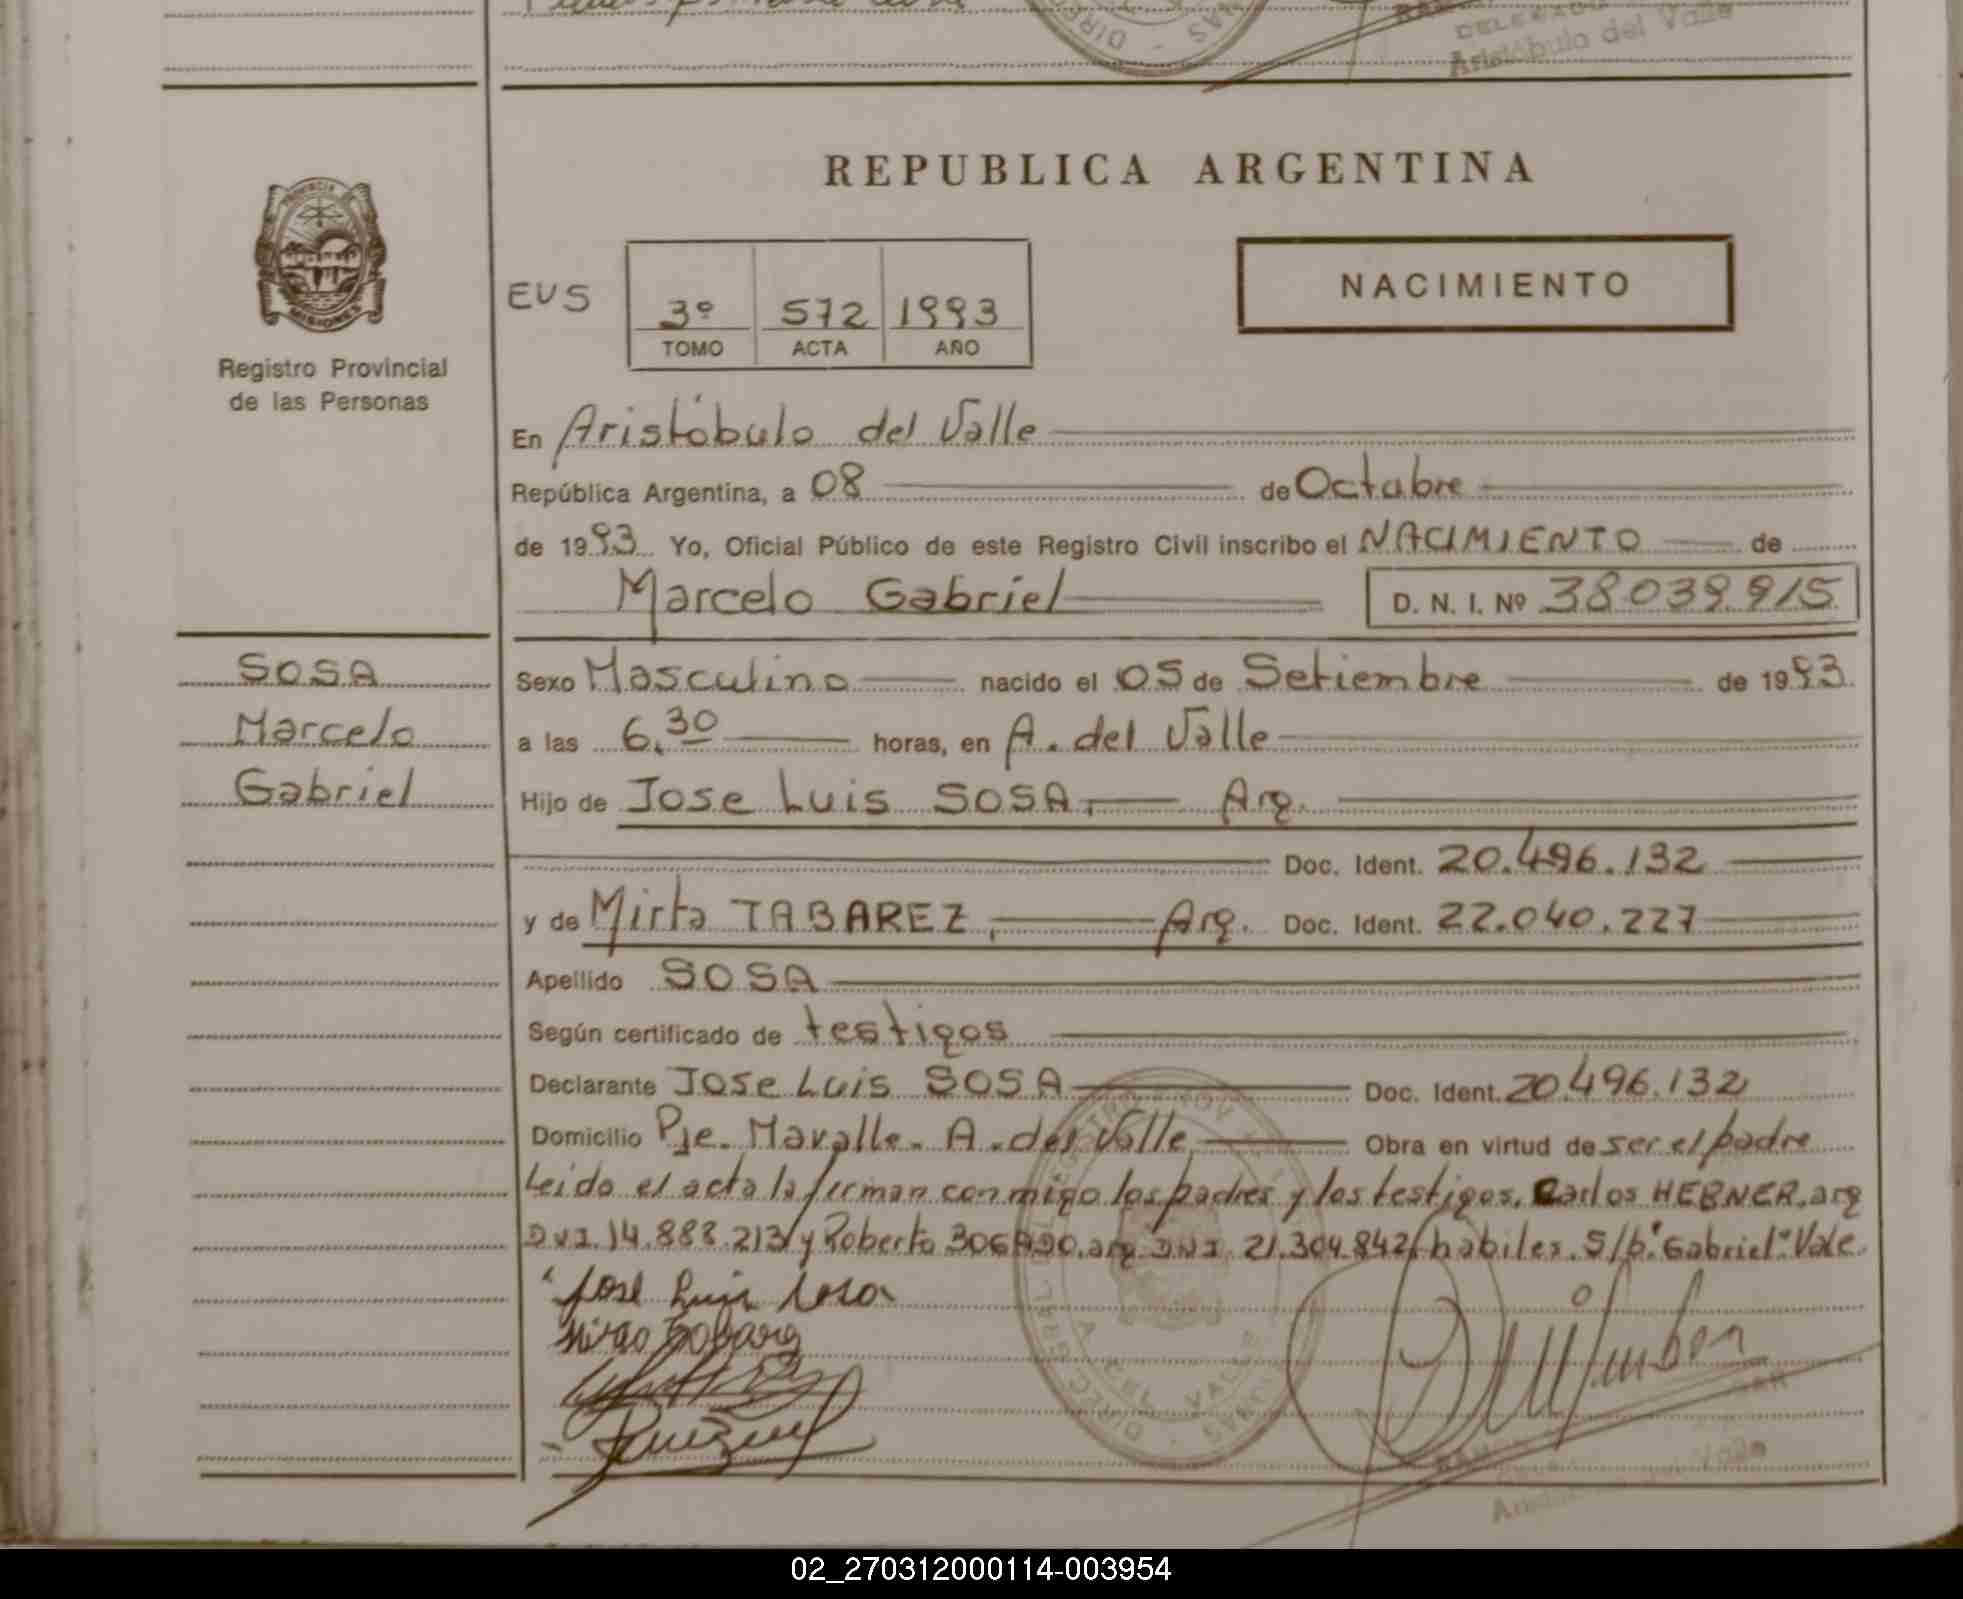 DELEGADO
Aristóbulo del Valle
REPUBLICA ARGENTINA
PROVINCIA
MISIONES
Registro Provincial
de las Personas
EVS
3º 572 1993
TOMO ACTA AÑO
NACIMIENTO
En Aristóbulo del Valle
República Argentina, a 08 de Octubre
de 1993 Yo, Oficial Público de este Registro Civil inscribo el NACIMIENTO de
Marcelo Gabriel D. N. I. Nº 38039915
SOSA
Marcelo
Gabriel
Sexo Masculino nacido el 05 de Setiembre de 1993
a las 6,30 horas, en A. del Valle
Hijo de Jose Luis SOSA, Arg.
Doc. Ident. 20.496.132
y de Mirta TABAREZ, Arg. Doc. Ident. 22.040.227
Apellido SOSA
Según certificado de testigos
Declarante Jose Luis SOSA Doc. Ident. 20.496.132
Domicilio Pje. Mavalle. A. del Valle Obra en virtud de ser el padre
Leido el acta la firman conmigo los padres y los testigos. Carlos HEBNER. arg
DNI. 14.888.213/y Roberto arg DNI. 21.304.842/habiles. S/b. "Gabriel" Vale.
Jose Luis Sosa
A. DEL VALLE
02_270312000114-003954